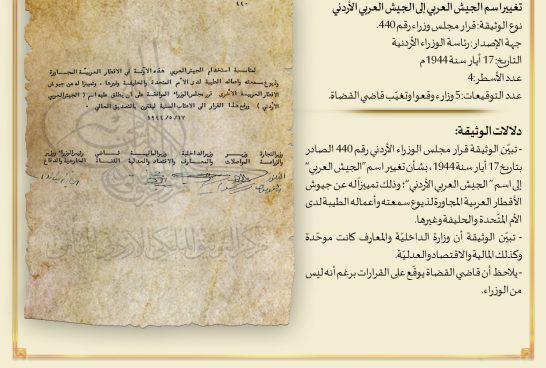 تغيير اسم الجيش العربي إلى الجيش العربي الأردني
نوع الوثيقة: قرار مجلس وزراء رقم 440.
جهة الإصدار: رئاسة الوزراء الأردنية
التاريخ: 17 أيار سنة 1944م
عدد الأسطر: 4
عدد التوقيعات: 5 وزراء وقعوا وتغيّب قاضي القضاة.
دلالات الوثيقة:
- تبيّن الوثيقة قرار مجلس الوزراء الأردني رقم 440 الصادر
بتاريخ 17 أيار سنة 1944، بشأن تغيير اسم "الجيش العربي"
إلى اسم "الجيش العربي الأردني"؛ وذلك تمييزاً له عن جيوش
الأقطار العربية المجاورة لذيوع سمعته وأعماله الطيبة لدى
الأمم المتّحدة والحليفة وغيرها.
- تبيّن الوثيقة أن وزارة الداخليّة والمعارف كانت موحّدة
وكذلك المالية والاقتصاد والعدليّة.
- يلاحظ أن قاضي القضاة يوقّع على القرارات برغم أنه ليس
من الوزراء.
٤٤٠
لمناسبة استخدام الجيش العربي هذه الآونة في الاقطار العربية المجاورة
وذيوع سمعته واعماله الطيبة لدى الأمم المتحدة والحليفة وغيرها، وتمييزا له عن جيوش
الاقطار العربية الاخرى تقرر مجلس الوزراء الموافقة على أن يطلق عليه اسم ( الجيش العربي
الأردني ) ورفع هذا القرار الى الاعتاب السنية ليقترن بالتصديق العالي .
١٩٤٤/٥/١٧
وزير التجارة وزير وزير الداخلية وزير المالية قاضي رئيس الوزراء ووزير
والزراعة المواصلات والمعارف والاقتصاد والعدلية القضاة الخارجية والدفاع